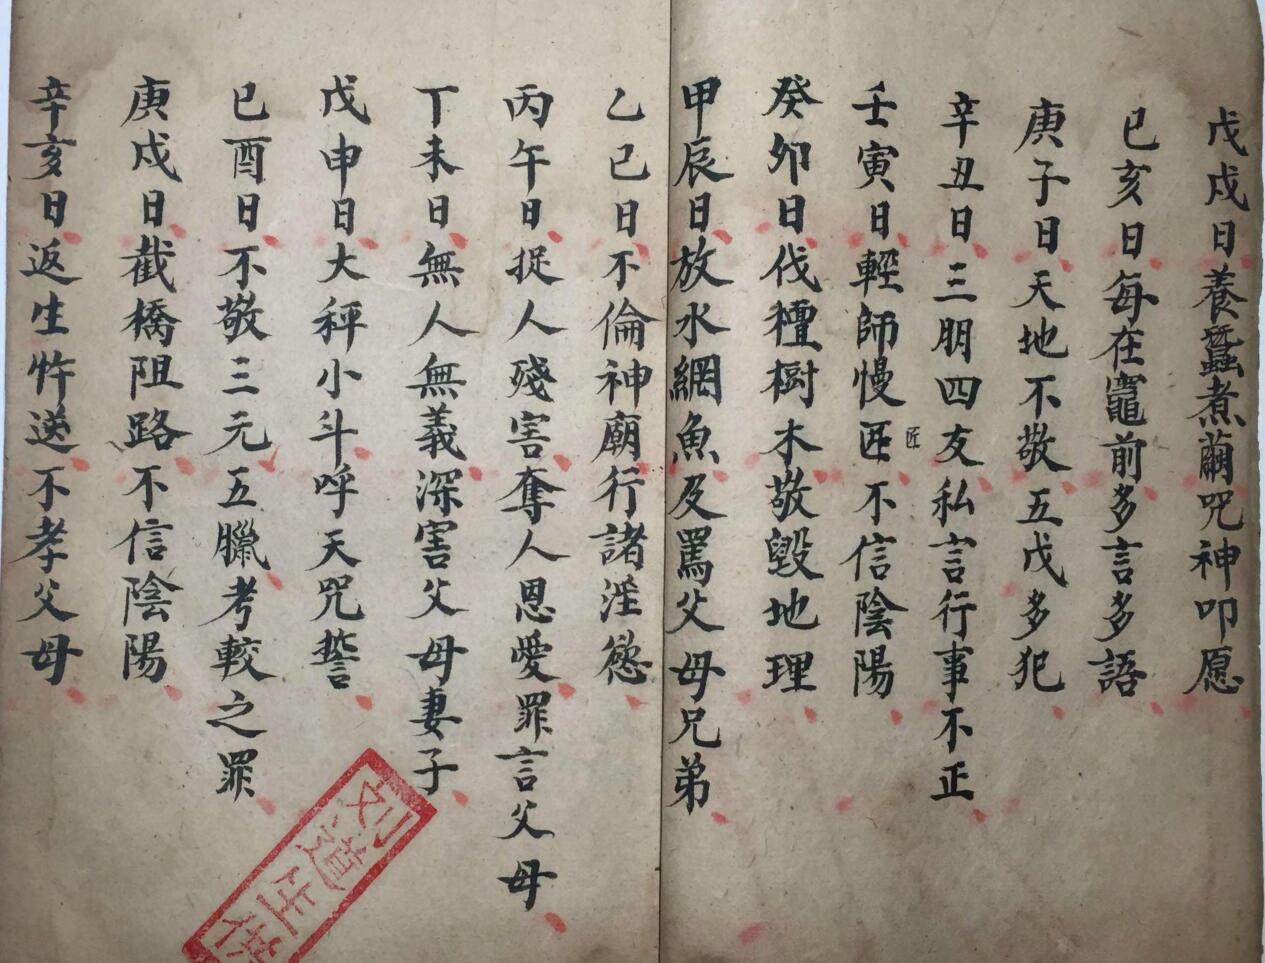 戊戌日養蠶煮繭咒神叩愿
已亥日每在竈前多言多語
庚子日天地不敬五戊多犯
辛丑日三朋四友私言行事不正
壬寅日輕師慢匠不信陰陽
匠
癸卯日伐檀樹木敬毀地理
甲辰日放水網魚及罵父母兄弟
乙已日不倫神廟行諸淫慾
丙午日捉人殘害奪人恩愛罪言父母
丁未日無人無義深害父母妻子
戊申日大秤小斗呼天咒誓
已酉日不敬三元五臘考較之罪
庚戌日截橋阻路不信陰陽
辛亥日返生忤送不孝父母